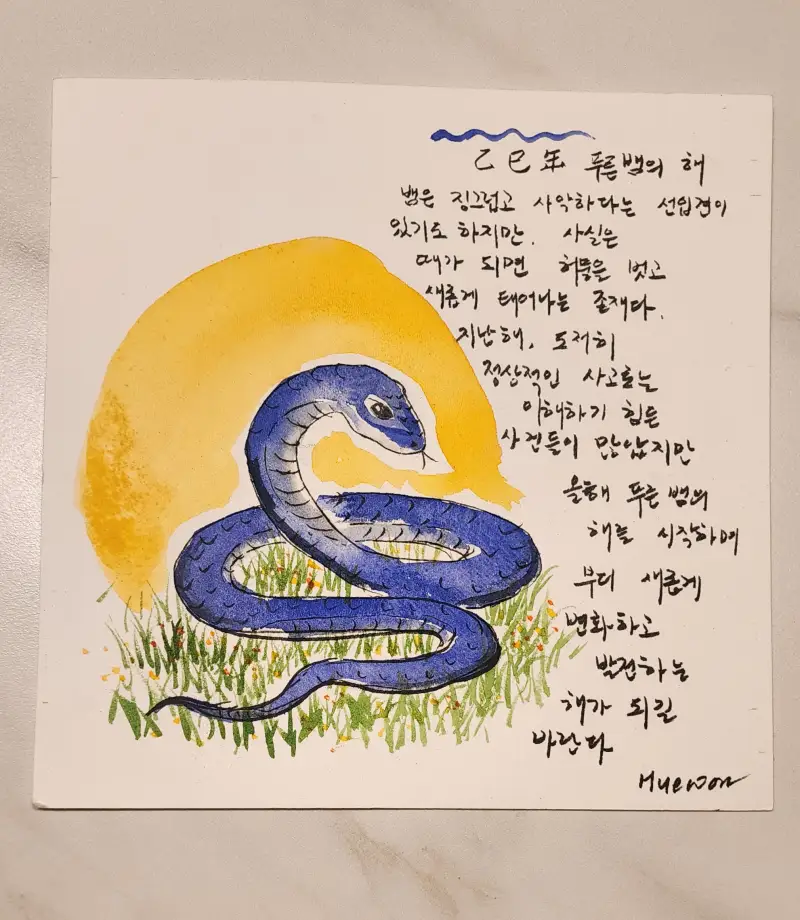 乙巳年 푸른뱀의 해
뱀은 징그럽고 사악하다는 선입견이
있기도 하지만, 사실은
때가 되면 허물을 벗고
새롭게 태어나는 존재다.
지난해, 도저히
정상적인 사고로는
이해하기 힘든
사건들이 많았지만
올해 푸른 뱀의
해를 시작하며
부디 새롭게
변화하고
발전하는
해가 되길
바란다
Huewon